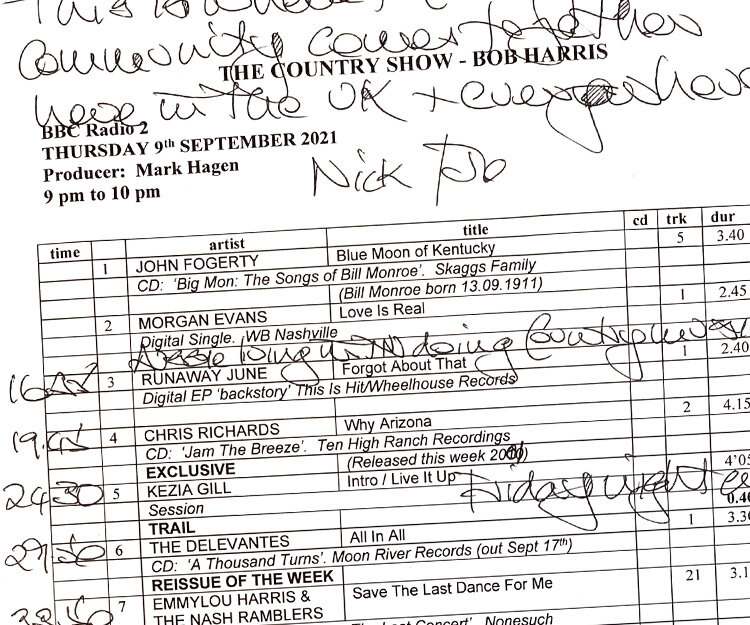 This is where
Community comes together
THE COUNTRY SHOW - BOB HARRIS
here in the UK + everywhere
BBC Radio 2
THURSDAY 9th SEPTEMBER 2021
Producer: Mark Hagen
9 pm to 10 pm
Nick
time artist title cd trk dur
1 JOHN FOGERTY Blue Moon of Kentucky 5 3.40
CD: 'Big Mon: The Songs of Bill Monroe'. Skaggs Family
(Bill Monroe born 13.09.1911)
2 MORGAN EVANS Love Is Real 1 2.45
Digital Single. WB Nashville
doing Country music
3 RUNAWAY JUNE Forgot About That 1 2.40
Digital EP 'backstory' This Is Hit/Wheelhouse Records
4 CHRIS RICHARDS Why Arizona 2 4.15
CD: 'Jam The Breeze'. Ten High Ranch Recordings
EXCLUSIVE (Released this week
24.30 5 KEZIA GILL Intro / Live It Up 4'05
Session Friday night
0.40
TRAIL
6 THE DELEVANTES All In All 1 3.30
CD: 'A Thousand Turns'. Moon River Records (out Sept 17th)
REISSUE OF THE WEEK
7 EMMYLOU HARRIS & Save The Last Dance For Me 21 3.1
THE NASH RAMBLERS
Last Concert'. Nonesuch